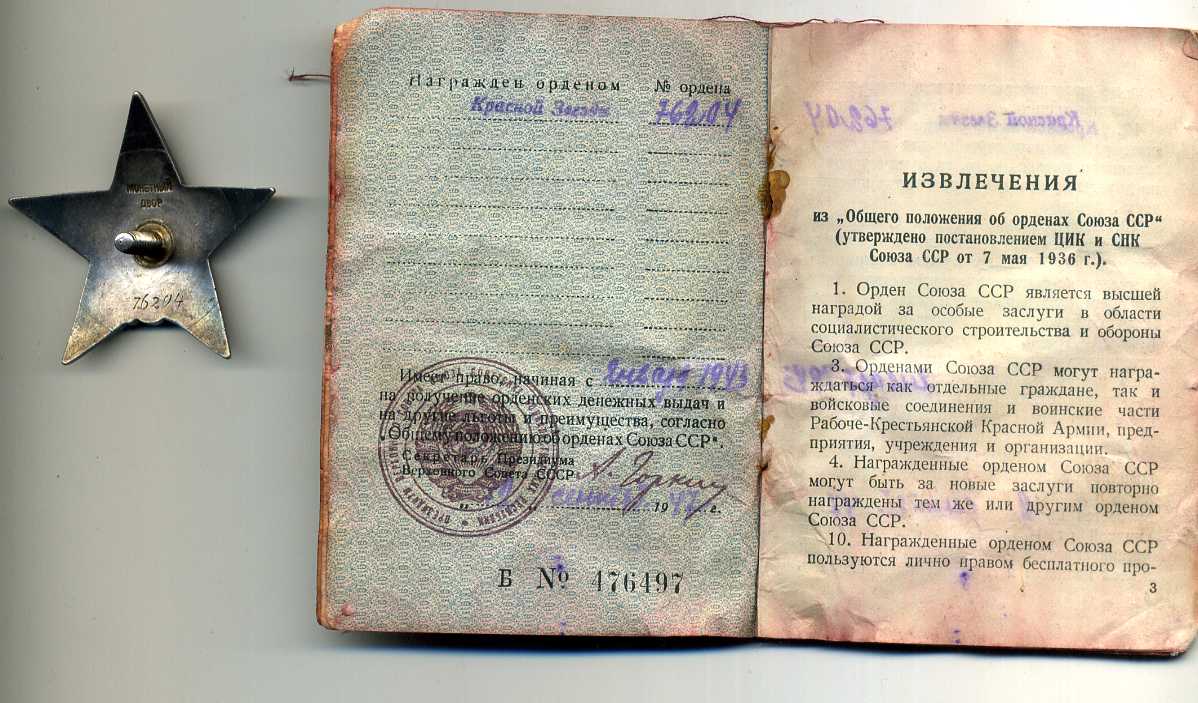 МОНЕТНЫЙ
ДВОР
76204
Награжден орденом № ордена
Красной Звезды 76204
Имеет право, начиная с Января 1943
на получение орденских денежных выдач и
на другие льготы и преимущества, согласно
„Общему положению об орденах Союза ССР“.
Секретарь Президиума
Верховного Совета СССР А. Горкин
1947 г.
Б № 476497
Красной Звезды 76204
ИЗВЛЕЧЕНИЯ
из „Общего положения об орденах Союза ССР“
(утверждено постановлением ЦИК и СНК
Союза ССР от 7 мая 1936 г.).
1. Орден Союза ССР является высшей
наградой за особые заслуги в области
социалистического строительства и обороны
Союза ССР.
3. Орденами Союза ССР могут награ-
ждаться как отдельные граждане, так и
войсковые соединения и воинские части
Рабоче-Крестьянской Красной Армии, пред-
приятия, учреждения и организации.
4. Награжденные орденом Союза ССР
могут быть за новые заслуги повторно
награждены тем же или другим орденом
Союза ССР.
10. Награжденные орденом Союза ССР
пользуются лично правом бесплатного про-
3